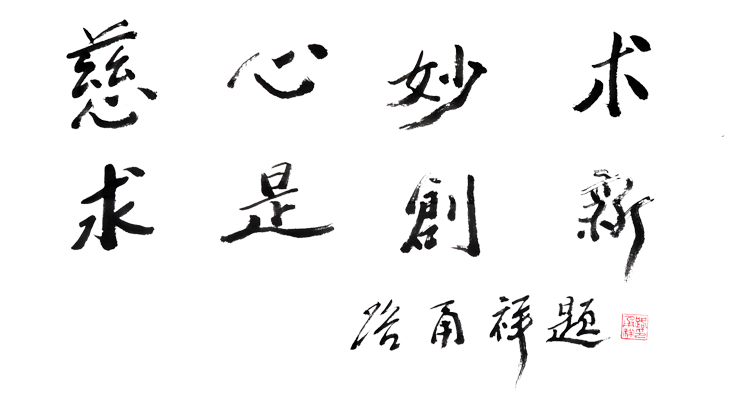 慈心妙术
求是創新
路甬祥題